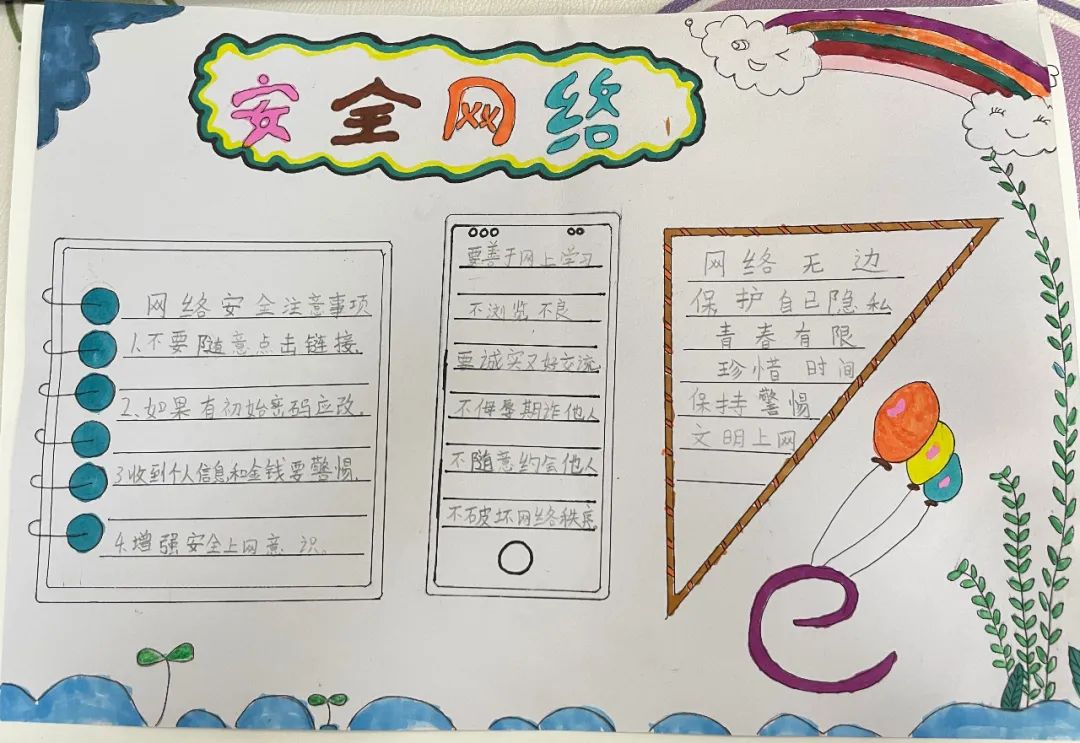 安全网络
网络安全注意事项
1.不要随意点击链接.
2、如果有初始密码应改.
3收到个人信息和金钱要警惕.
4.增强安全上网意识.
要善于网上学习
不浏览不良
要诚实又好交流
不侮辱期诈他人
不随意约会他人
不破坏网络秩序
网络无边
保护自己隐私
青春有限
珍惜时间
保持警惕
文明上网
e